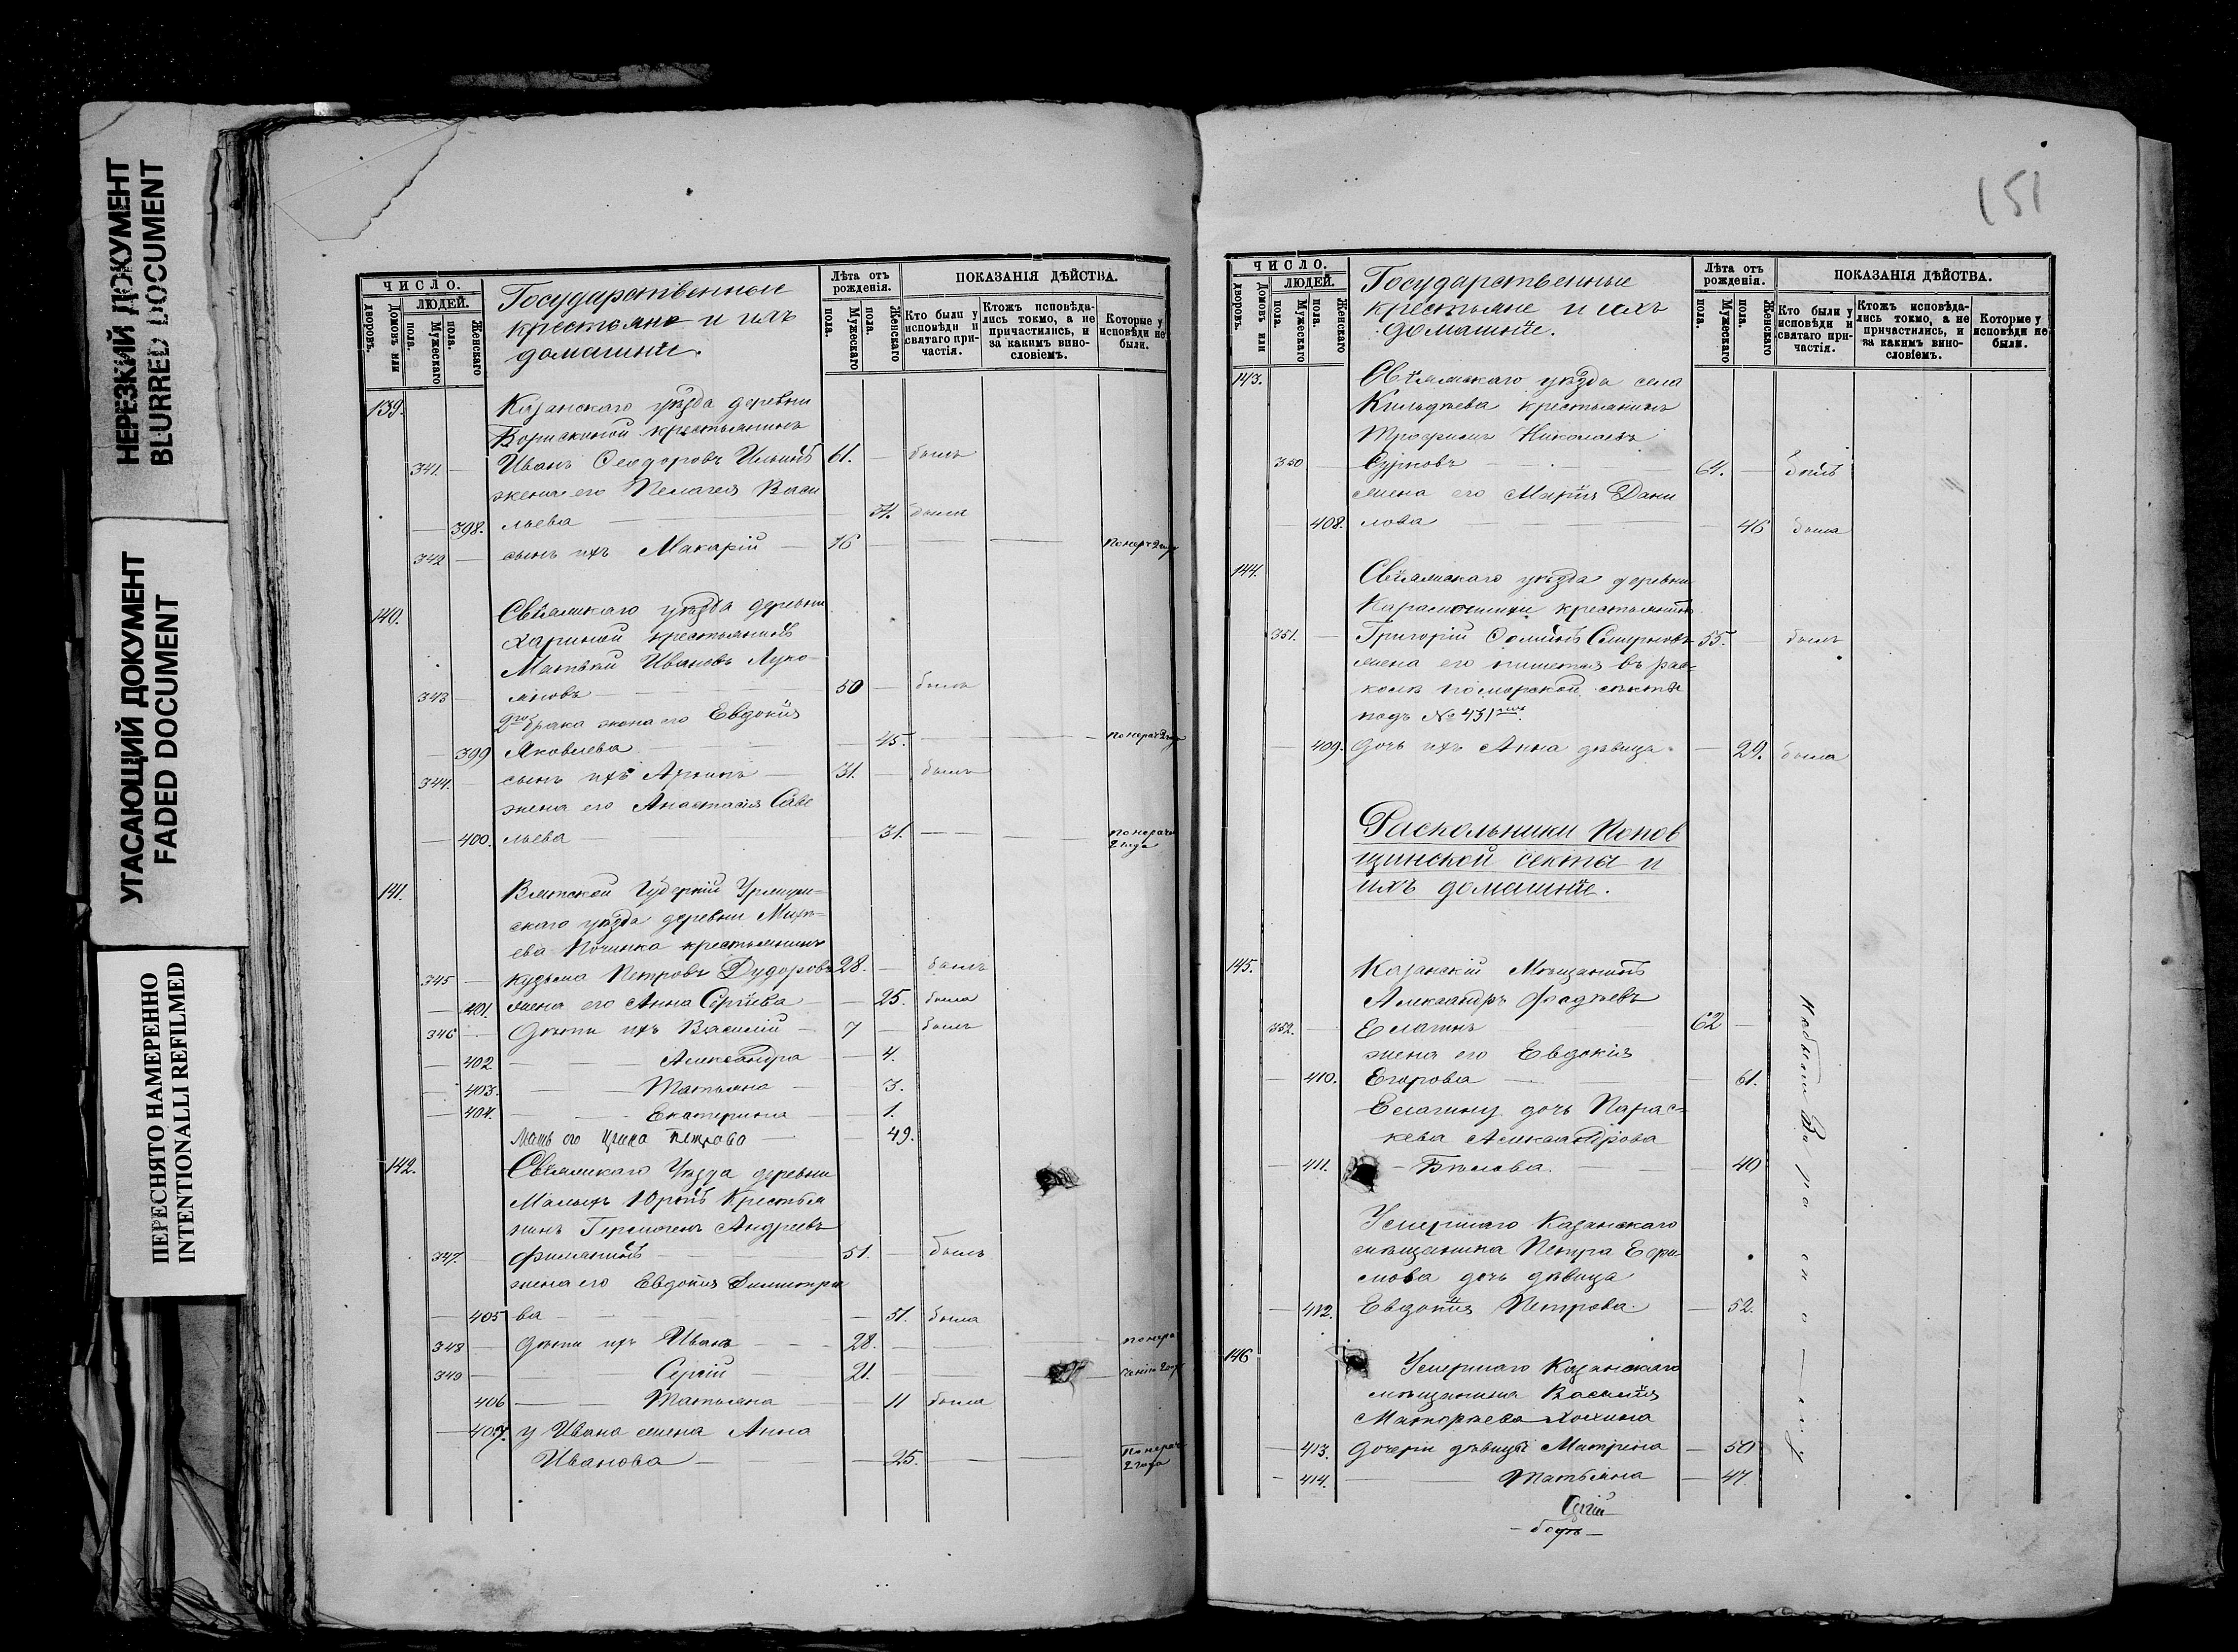 НЕРЕЗКИЙ ДОКУМЕНТ
BLURRED DOCUMENT
УГАСАЮЩИЙ ДОКУМЕНТ
FADED DOCUMENT
ПЕРЕСНЯТО НАМЕРЕННО
INTENTIONALLI REFILMED
ЧИСЛО.
Домовъ или дворовъ.
ЛЮДЕЙ.
Мужескаго пола.
Женскаго пола.
Государственные
крестьяне и ихъ
домашніе.
Лѣта отъ рожденія.
Мужескаго пола.
Женскаго пола.
ПОКАЗАНІЯ ДѢЙСТВА.
Кто были у исповѣди и святаго причастія.
Ктожъ исповѣдались токмо, а не причастились, и за какимъ винословіемъ.
Которые у исповѣди не были.
139. Казанскаго уѣзда деревни
Борискиной крестьянинъ
341. — Иванъ Ѳеодоровъ Ильинъ 61. — былъ
жена его Пелагея Васи
— 398. льева — 54. была
342 — сынъ ихъ Макарій — 16 —
140. Свіяжскаго уѣзда деревни
Хариной крестьянинъ
Матвѣй Ивановъ Луко-
343 — яновъ — 50 — былъ
2го брака жена его Евдокія
— 399 Яковлева — 45.
344. — сынъ ихъ — 31. — былъ
жена его Анастасія Саве
— 400. льева — 31. — по нерач 2 года
141. Вятской Губерніи Уржум-
скаго уѣзда деревни Михѣ-
ева Починка крестьянинъ
345 — Кузьма Петровъ Дудоровъ 28. — былъ
— 401. жена его Анна Сергіева — 25. была
346 — Дѣти ихъ Василій — 7 — былъ
— 402 — Александра — 4.
— 403. — Татьяна — 3.
— 404. — Екатерина — 1.
Мать его Петрова — 49.
142. Свіяжскаго Уѣзда деревни
Малыхъ Крестья
нинъ Гермогенъ Андреевъ
347. — 51. — былъ
жена его Евдокія Димитріе
— 405 ва — 51. была
348 — Дѣти ихъ Иванъ — 28.
349 — Сергій — 21.
406 — Татьяна — 11 была
— 407. у Ивана жена Анна
Иванова — 25. — По нерач 2 года
151
ЧИСЛО.
Домовъ или дворовъ.
ЛЮДЕЙ.
Мужескаго пола.
Женскаго пола.
Государственные
крестьяне и ихъ
домашніе.
Лѣта отъ рожденія.
Мужескаго пола.
Женскаго пола.
ПОКАЗАНІЯ ДѢЙСТВА.
Кто были у исповѣди и святаго причастія.
Ктожъ исповѣдались токмо, а не причастились, и за какимъ винословіемъ.
Которые у исповѣди не были.
143. Свіяжскаго уѣзда села
Кильдѣева крестьянинъ
Трофимъ Николаевъ
350 Сурковъ — 64. — былъ
жена его Марія Дани
— 408. лова — 46 была
144. Свіяжскаго уѣзда деревни
крестьянинъ
351. — Григорій Ѳоминъ Смирновъ 55. — былъ
жена его пишется въ рас-
колѣ поморской секты
подъ № 431
— 409. Дочь ихъ Анна дѣвица — 29. была
Раскольники Попов
щинской секты и
ихъ домашніе.
145. Казанскій Мѣщанинъ
Александръ Фадѣевъ
352. — Елагинъ 62 —
жена его Евдокія
— 410. Егорова — 61.
Елагину дочь Парас-
кева Александрова
— 411. — Бѣлова. — 40
Умершаго Казанскаго
мѣщанина Петра Ефи
мова дочь дѣвица
— 412. Евдокія Петрова. — 52.
146 Умершаго Казанскаго
мѣщанина Василія
— 413. Дочери дѣвицы Матрена — 50
— 414. — Татьяна — 47.
Не были За расколомъ